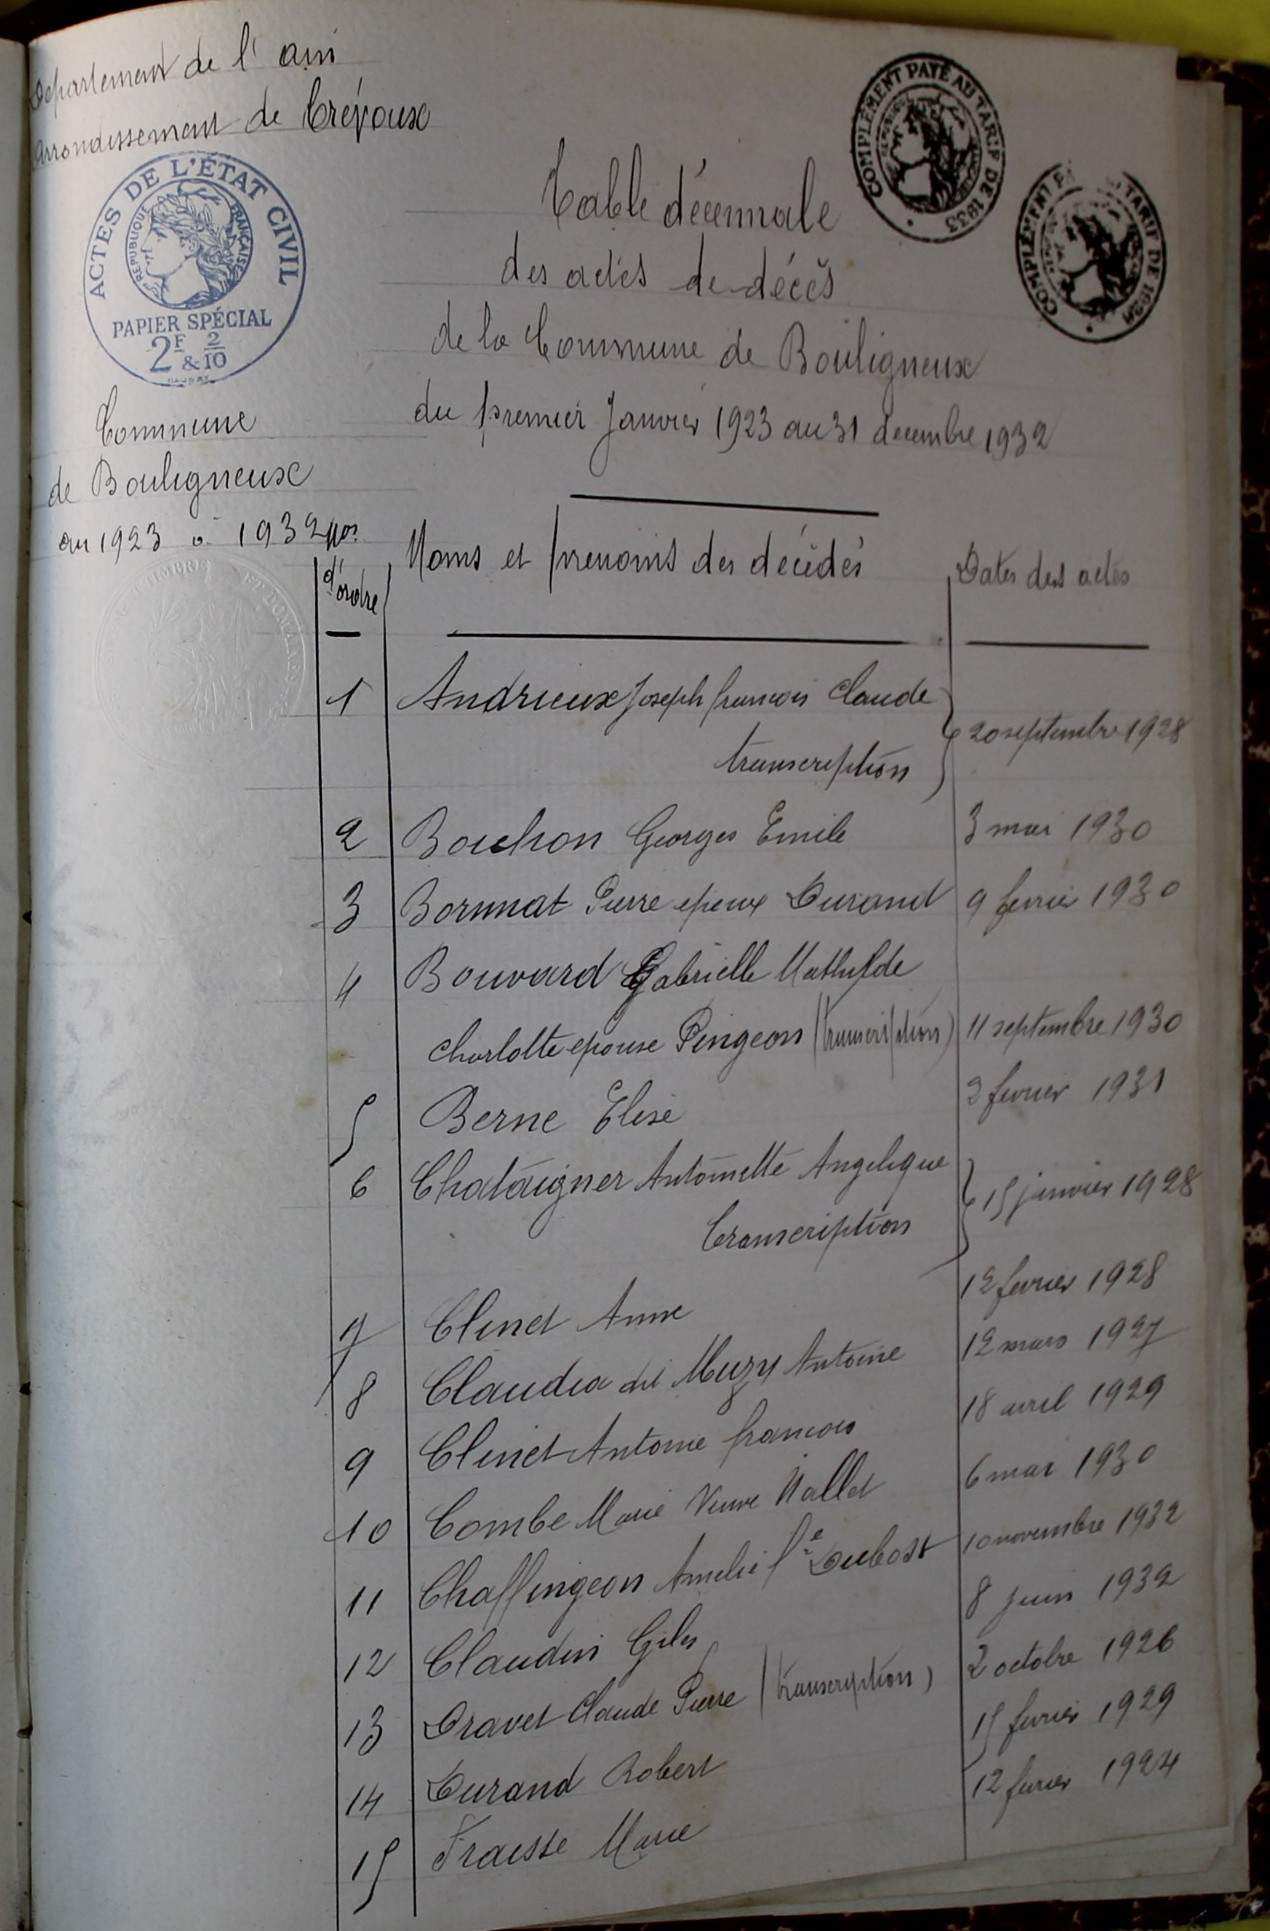 Departement de l'ain
arrondissement de Trévoux
ACTES DE L'ÉTAT CIVIL
RÉPUBLIQUE FRANÇAISE
PAPIER SPÉCIAL
2F & 2/10
COMPLÉMENT PAYÉ AU TARIF DE 1933
COMPLÉMENT P TARIF DE
Table décennale
des actes de décès
de la Commune de Bouligneux
du premier Janvier 1923 au 31 decembre 1932
Commune
de Bouligneux
an 1923 à 1932
Nos d'ordre
Noms et prenoms des décédés
Dates des actes
1 Andrieux Joseph francois Claude
transcription 20 septembre 1928
2 Bouchon Georges Emile 3 mai 1930
3 Bornnat Pierre epoux Durand 9 fevrier 1930
4 Bouvard Gabrielle Mathylde
charlotte epouse Pingeon (transcription) 11 septembre 1930
5 Berne Elise 3 fevrier 1931
6 Chataigner Antoinette Angelique
transcription 15 janvier 1928
7 Clinet Anne 12 fevrier 1928
8 Claudia dit Muzy Antoine 12 mars 1927
9 Clinet Antoine francois 18 avril 1929
10 Combe Marie Veuve Nallet 6 mai 1930
11 Chaffingeon Amelie fe Dubost 10 novembre 1932
12 Claudin Giles 8 juin 1932
13 Dravet Claude Pierre (transcryption) 2 octobre 1926
14 Durand Robert 15 fevrier 1929
15 Fraisse Marie 12 fevrier 1924